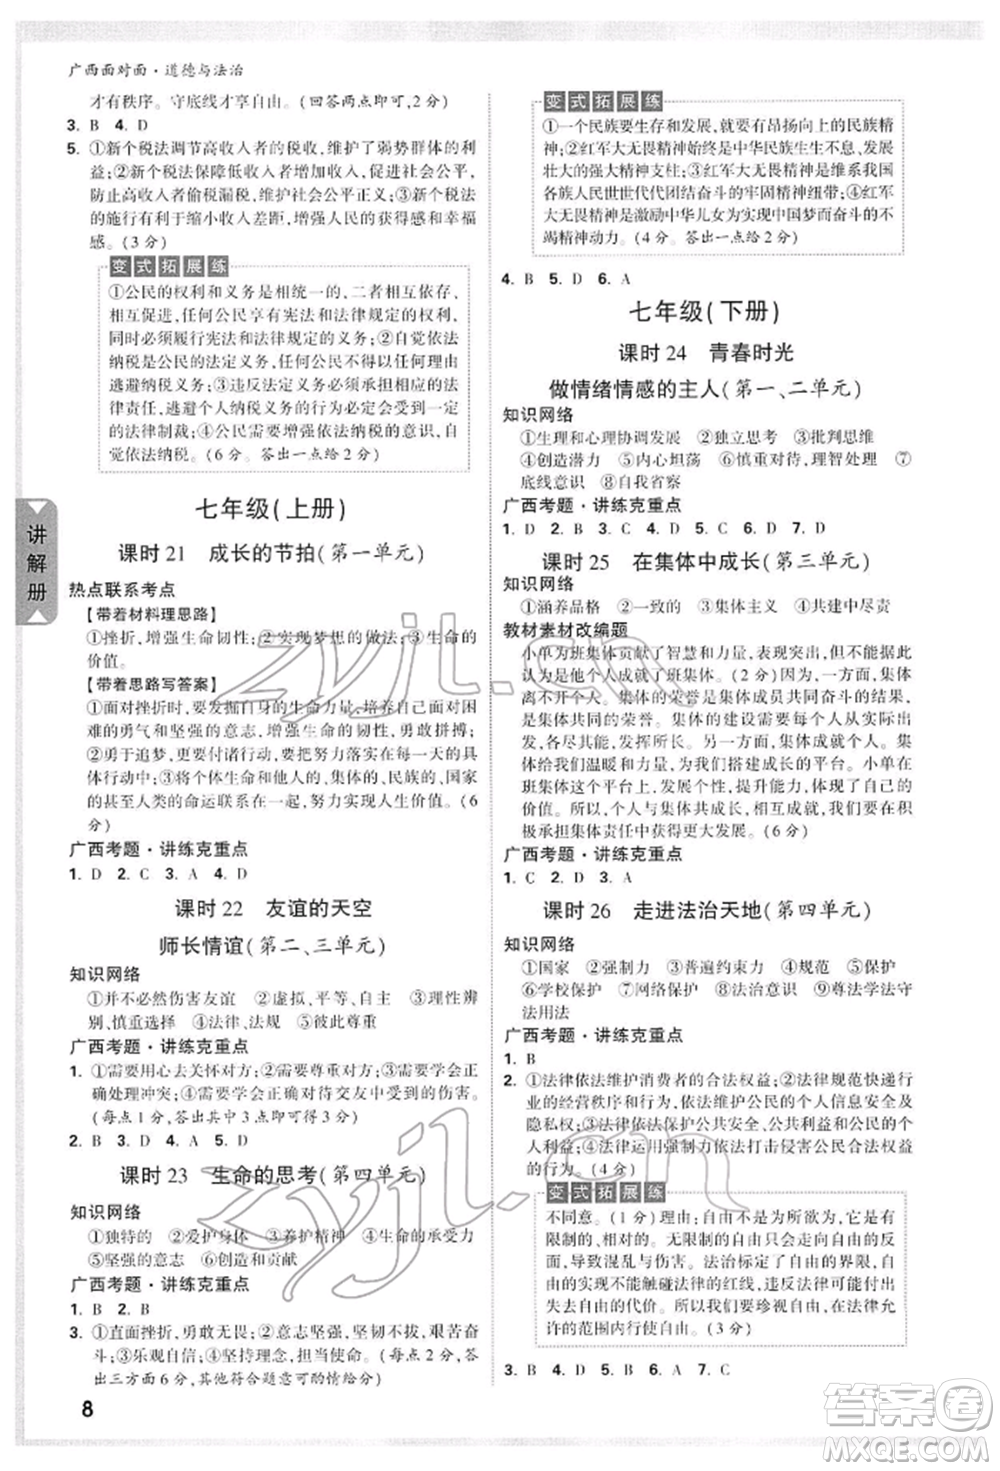 广西面对面·道德与法治
才有秩序。守底线才享自由。(回答两点即可,2分)
3. B 4. D
5. ①新个税法调节高收入者的高收入,维护了弱势群体的利
益;②新个税法保障低收入者收入,促进社会公平;③新个税法
防止高收入者偷税漏税,维护社会公平正义;③新个税法
的施行有利于缩小收入差距,增强人民的获得感和幸福
感。(3分)
变式拓展练
①公民的权利和义务是相统一的,二者相互依存、
相互促进,任何公民享有宪法和法律规定的权利,
同时必须履行宪法和法律规定的义务;②自觉依法
纳税是公民的法定义务,任何公民不得以任何理由
逃避纳税义务;③违反法定义务须依法承担相应的法
律责任,逃避个人纳税义务的行为必定会受到一定
的法律制裁;④公民需要增强依法纳税的意识,自
觉依法纳税。(6分)
七年级(上册)
课时21 成长的节拍(第一单元)
热点联系考点
【带着材料理思路】
①挫折,增强生命韧性;②实现梦想的做法;③生命的
价值。
【带着思路写答案】
①面对挫折时,要发掘自身的生命力量,培养面对困难
的勇气和坚强的意志,增强生命的韧性,勇敢拼搏;
②勇于追梦,更要付诸行动,把努力落实在每一天的具
体行动中;③将个体生命和他人的、集体的、民族的、国家的
甚至人类的命运联系在一起,努力实现人生价值。(6
分)
广西考题·讲练克重点
1. D 2. C 3. A 4. D
课时22 友谊的天空
师长情谊(第二、三单元)
知识网络
①并不必然伤害友谊 ②虚拟,平等、自主 ③理性辨
别,慎重选择 ④法律、法规 ⑤彼此尊重
广西考题·讲练克重点
1. ①需要用心去关怀对方;②需要学会正
确处理冲突;④需要学会正确对待交友中受到的伤害。
(每点1分,答出其中3点即可得3分)
2. B 3. D 4. A 5. D
课时23 生命的思考(第四单元)
知识网络
①独特的 ②爱护身体 ③养护精神 ④生命的承受力
⑤坚强的意志 ⑥创造和贡献
广西考题·讲练克重点
1. B 2. B
3. ①直面挫折,勇敢无畏;②意志坚强,坚韧不拔,艰苦奋
斗;③乐观自信;④坚守理念,担当使命。(每点2分,答
出三方面6分)
变式拓展练
①一个民族要生存和发展,就要有昂扬向上的民族精
神;②红军大无畏精神始终是中华民族生生不息、发展
壮大的强大精神支柱;③红军大无畏精神是维系我国
各族人民世世代代团结奋斗的牢固精神纽带;④红军
大无畏精神是激励中华儿女为实现中国梦而奋斗的不
竭精神动力。(4分。答出一点给2分)
4. B 5. D 6. A
七年级(下册)
课时24 青春时光
做情绪情感的主人(第一、二单元)
知识网络
①生理和心理协调发展 ②独立思考 ③批判思维
④创造潜力 ⑤内心坦荡 ⑥慎重对待,理智处理 ⑦
底线意识 ⑧自我省察
广西考题·讲练克重点
1. D 2. B 3. C 4. D 5. C 6. A
课时25 在集体中成长(第三单元)
知识网络
①涵养品格 ②一致的 ③集体主义 ④共建中尽责
教材素材改编题
小单为班集体贡献了智慧和力量,展现了自己的价值,
认为是他个人成就了班集体。(2分)但是,个人的力量
离不开集体。集体的荣誉是集体成员共同奋斗的结果,
是集体共同的荣誉。集体的建设需要每个人从实际出
发,各尽所能、发挥所长。另一方面,集体也成就了个人。集
体给我们温暖和力量,为我们搭建成长的平台。小单在
班集体这个平台上,发挥作用,提升能力,实现了自己的
价值。所以,个人与集体共成长,我们要在共建中尽责,积
极承担集体责任中获得更大发展。(6分)
广西考题·讲练克重点
1. C 2. D 3. A
课时26 走进法治天地(第四单元)
知识网络
①国家 ②强制力 ③普遍约束力 ④规范 ⑤保护
⑥学校保护 ⑦网络保护 ⑧法治意识 ⑨尊法学法守
法用法
广西考题·讲练克重点
1. B
2. ①法律依法维护消费者的合法权益;②法律规范快递行
业的经营秩序和行为,依法维护公民的个人信息安全和
隐私权;③法律依法保护公民的个人信息不受
侵害;④法律运用强制力依法打击侵犯公民合法权益
的行为。(6分)
变式拓展练
不同意。(1分)理由:自由不是为所欲为,它是有
限制的、相对的。无限制的自由只会走向自由的反
面,导致混乱与伤害。法治规定了自由的界限,
自由的实现不能触碰法律的红线,违反法律可能付出
失去自由的代价。我们要珍视自由,在法律允
许的范围内行使自由。(3分)
3. B 4. D 5. B 6. A 7. C
讲解册
8
zyjl.cn
zyjl.cn
答案圈
MXQE.COM